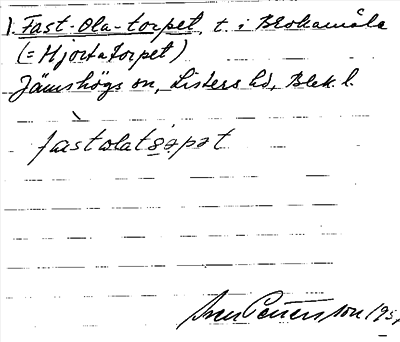 1. Fast-Ola-torpet, t. i Brokamåla
(= Hjortatorpet)
Jämshögs sn, Listers hd, Blek. l.
fast olat
Pettersson 195